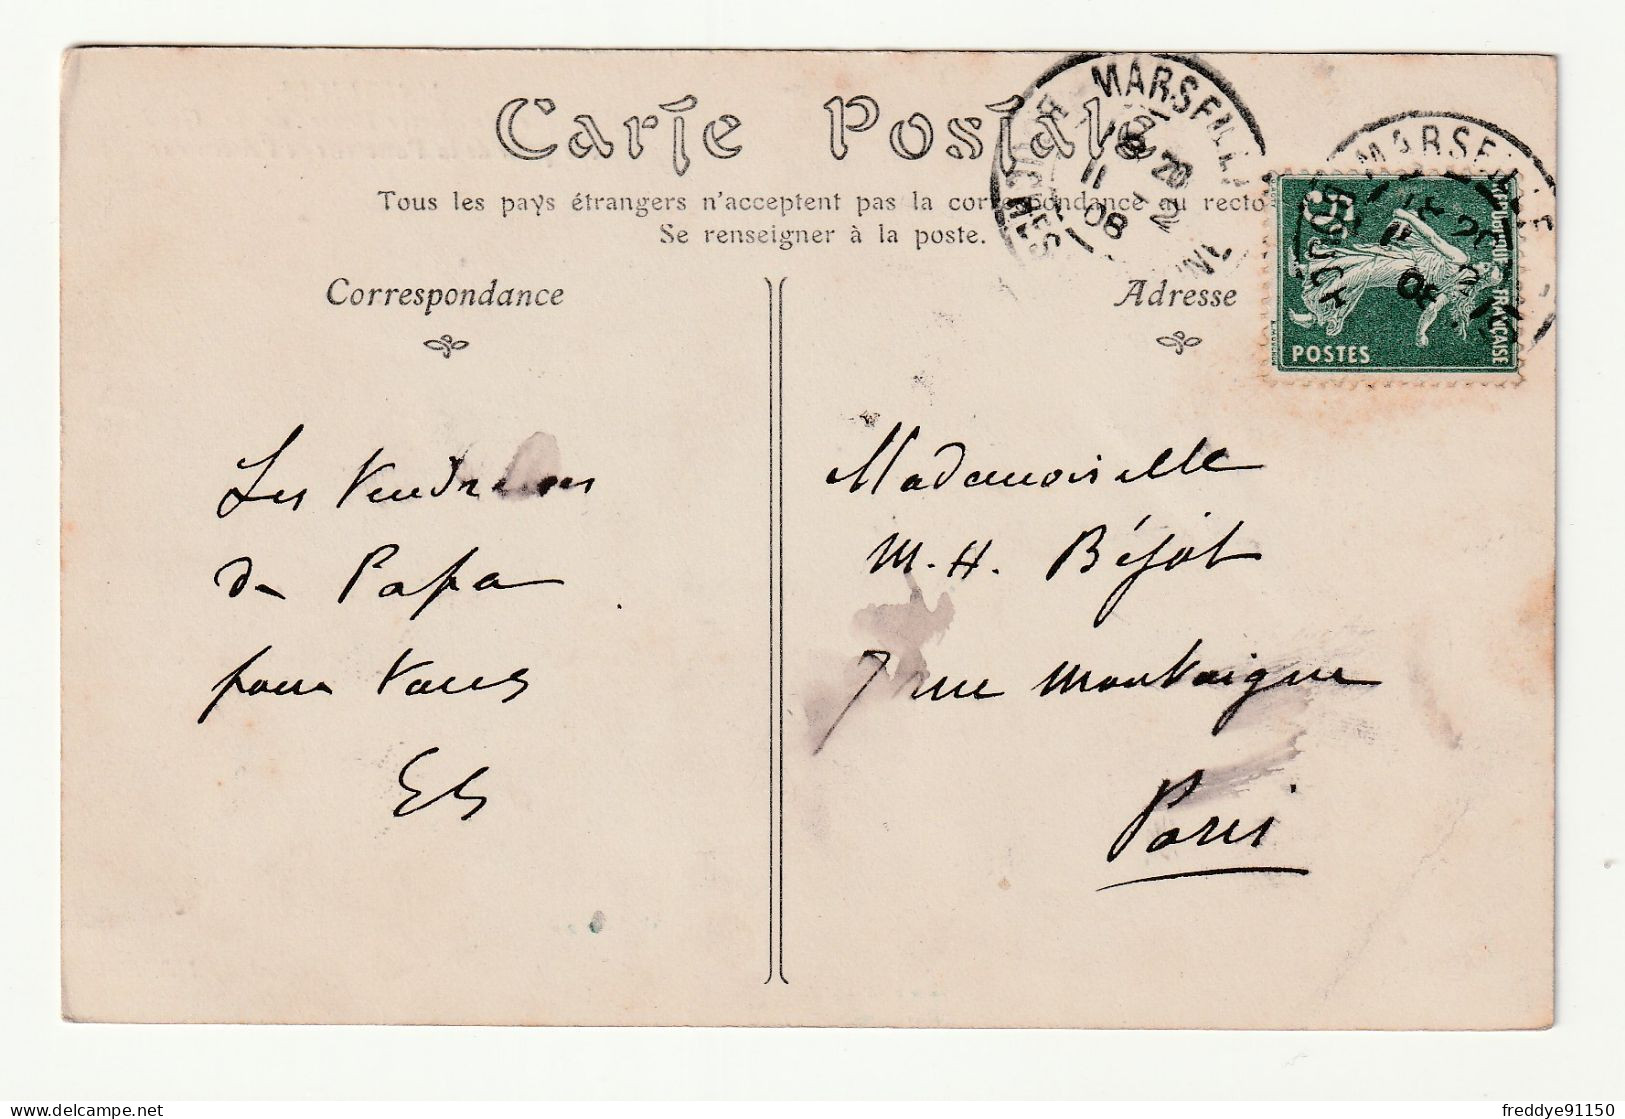 Carte Postale
Tous les pays étrangers n'acceptent pas la correspondance au recto
Se renseigner à la poste.
Correspondance
Adresse
MARSEILLE
20
11 2
08
MARSEILLE
20
11 2
08
RÉPUBLIQUE FRANÇAISE
5c
POSTES
Les tendresses
de Papa
pour vous
Mademoiselle
M. H. Béjot
7 rue Montaigne
Paris
freddye91150